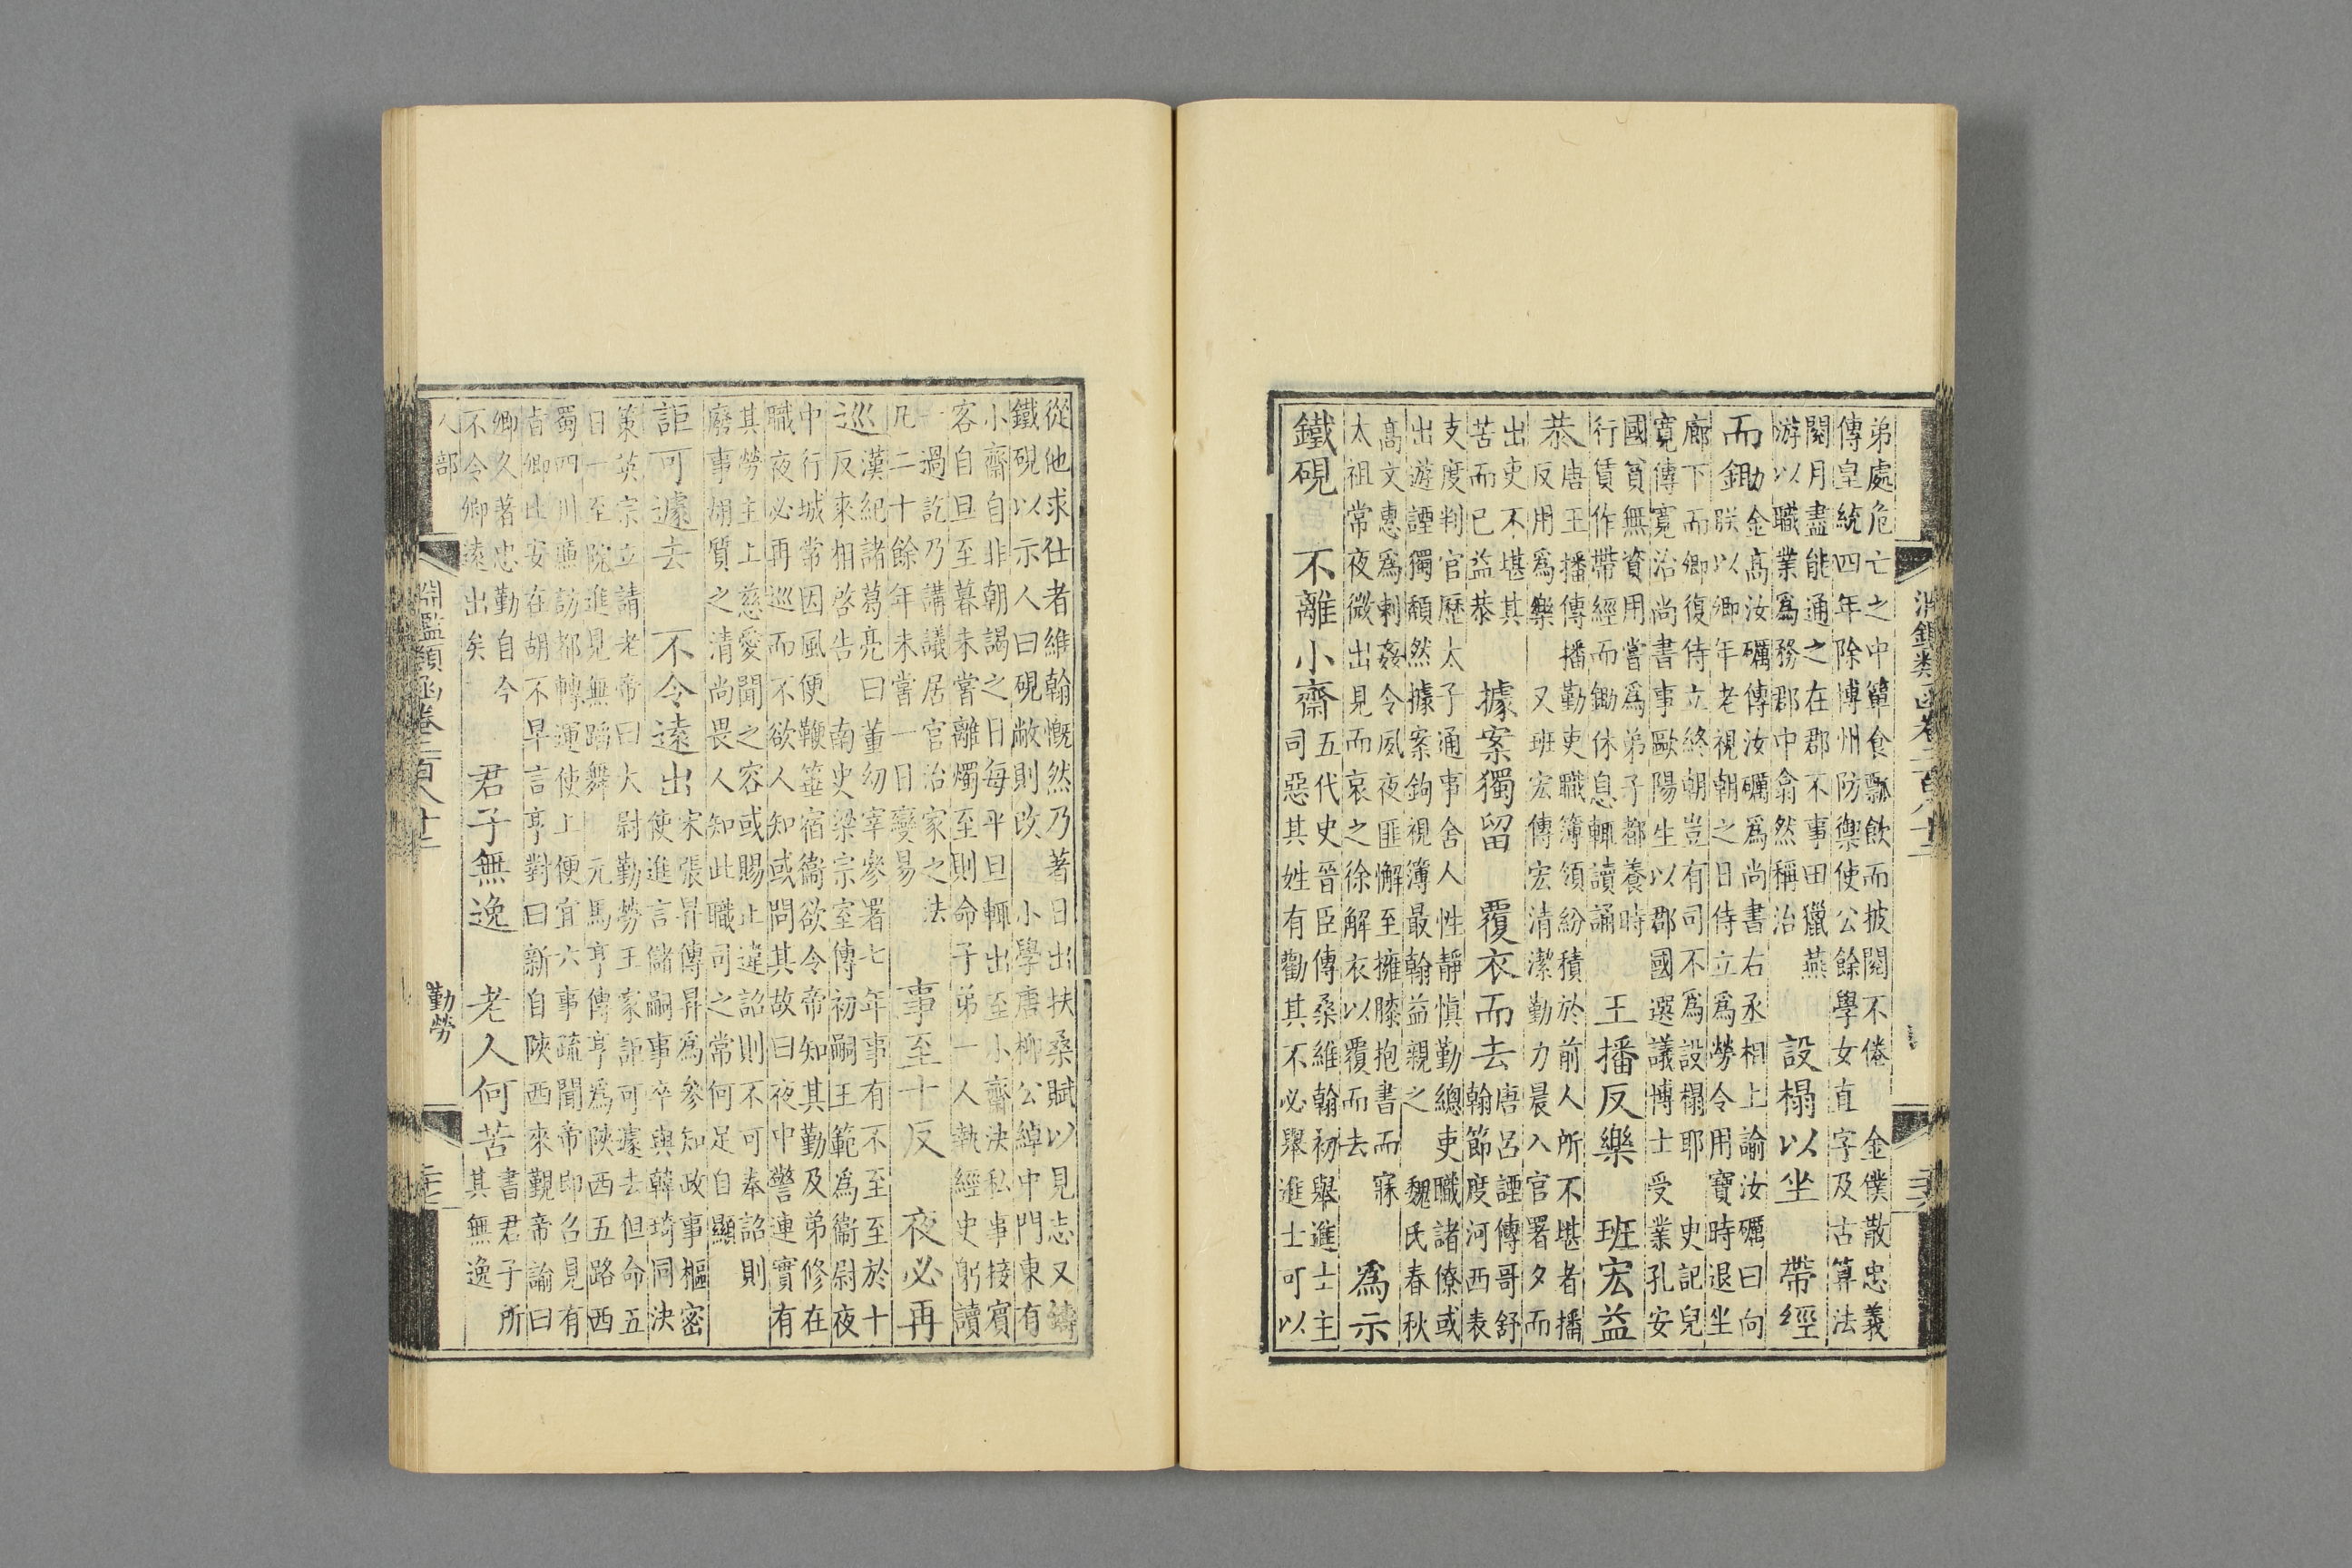 弟處危亡之中簞食瓢飲而披閱不倦 金僕散忠義
傳皇統四年除博州防禦使公餘學女直字及古算法
閱月盡能通之在郡不事田獵燕
游以職業爲務郡中翕然稱治
設榻以坐 帶經
而鋤
金高汝礪傳汝礪爲尚書右丞相上諭汝礪曰向
朕以卿年老視朝之日侍立爲勞令用寶時退坐
廊下而卿復侍立終朝豈有司不爲設榻耶 史記兒
寬傳寬治尚書事歐陽生以郡國選議博士受業孔安
國貧無資用嘗爲弟子都養時
行賃作帶經而鋤休息輒讀誦
王播反樂 班宏益
恭
唐王播傳 播勤吏職簿領紛積於前人所不堪者播
反用爲樂 又班宏傳宏清潔勤力晨入官署夕而
出吏不堪其
苦而已益恭
據案獨留 覆衣而去
唐呂諲傳哥舒
翰節度河西表
支度判官歷太子通事舍人性靜慎勤總吏職諸僚或
出遊諲獨頹然據案鉤視簿最翰益親之 魏氏春秋
高文惠爲刺姦令夙夜匪懈至擁膝抱書而寐
太祖常夜微出見而哀之徐解衣以覆而去
爲示
鐵硯 不離小齋
五代史晉臣傳桑維翰初舉進士主
司惡其姓有勸其不必舉進士可以
從他求仕者維翰慨然乃著日出扶桑賦以見志又鑄
鐵硯以示人曰硯敝則改 小學唐柳公綽中門東有
小齋自非朝謁之日每平旦輒出至小齋決私事接賓
客自旦至暮未嘗離燭至則命子弟一人執經史躬讀
一過訖乃講議居官治家之法
凡二十餘年未嘗一日變易
事至十反 夜必再
巡
漢紀諸葛亮曰董幼宰參署七年事有不至至於十
反來相啓告 南史梁宗室傳初嗣王範爲衞尉夜
中行城常因風便鞭箠宿衞欲令帝知其勤及弟修在
職夜必再巡而不欲人知或問其故曰夜中警連實有
其勞主上慈愛聞之容或賜止違詔則不可奉詔則
廢事胡質之清尚畏人知此職司之常何足自顯
詎可遽去 不令遠出
宋張昇傳昇爲參知政事樞密
使進言儲嗣事卒與韓琦同決
策英宗立請老帝曰大尉勤勞王家詎可遽去但命五
日一至院進見無蹈舞 元馬亨傳亨爲陝西五路西
蜀四川廉訪都轉運使上便宜六事疏聞帝即召見有
旨卿比安在胡不早言亨對曰新自陝西來覲帝諭曰
卿久著忠勤自今
不令卿遠出矣
君子無逸 老人何苦
書君子所
其無逸
人部
淵鑑類函卷
勤勞